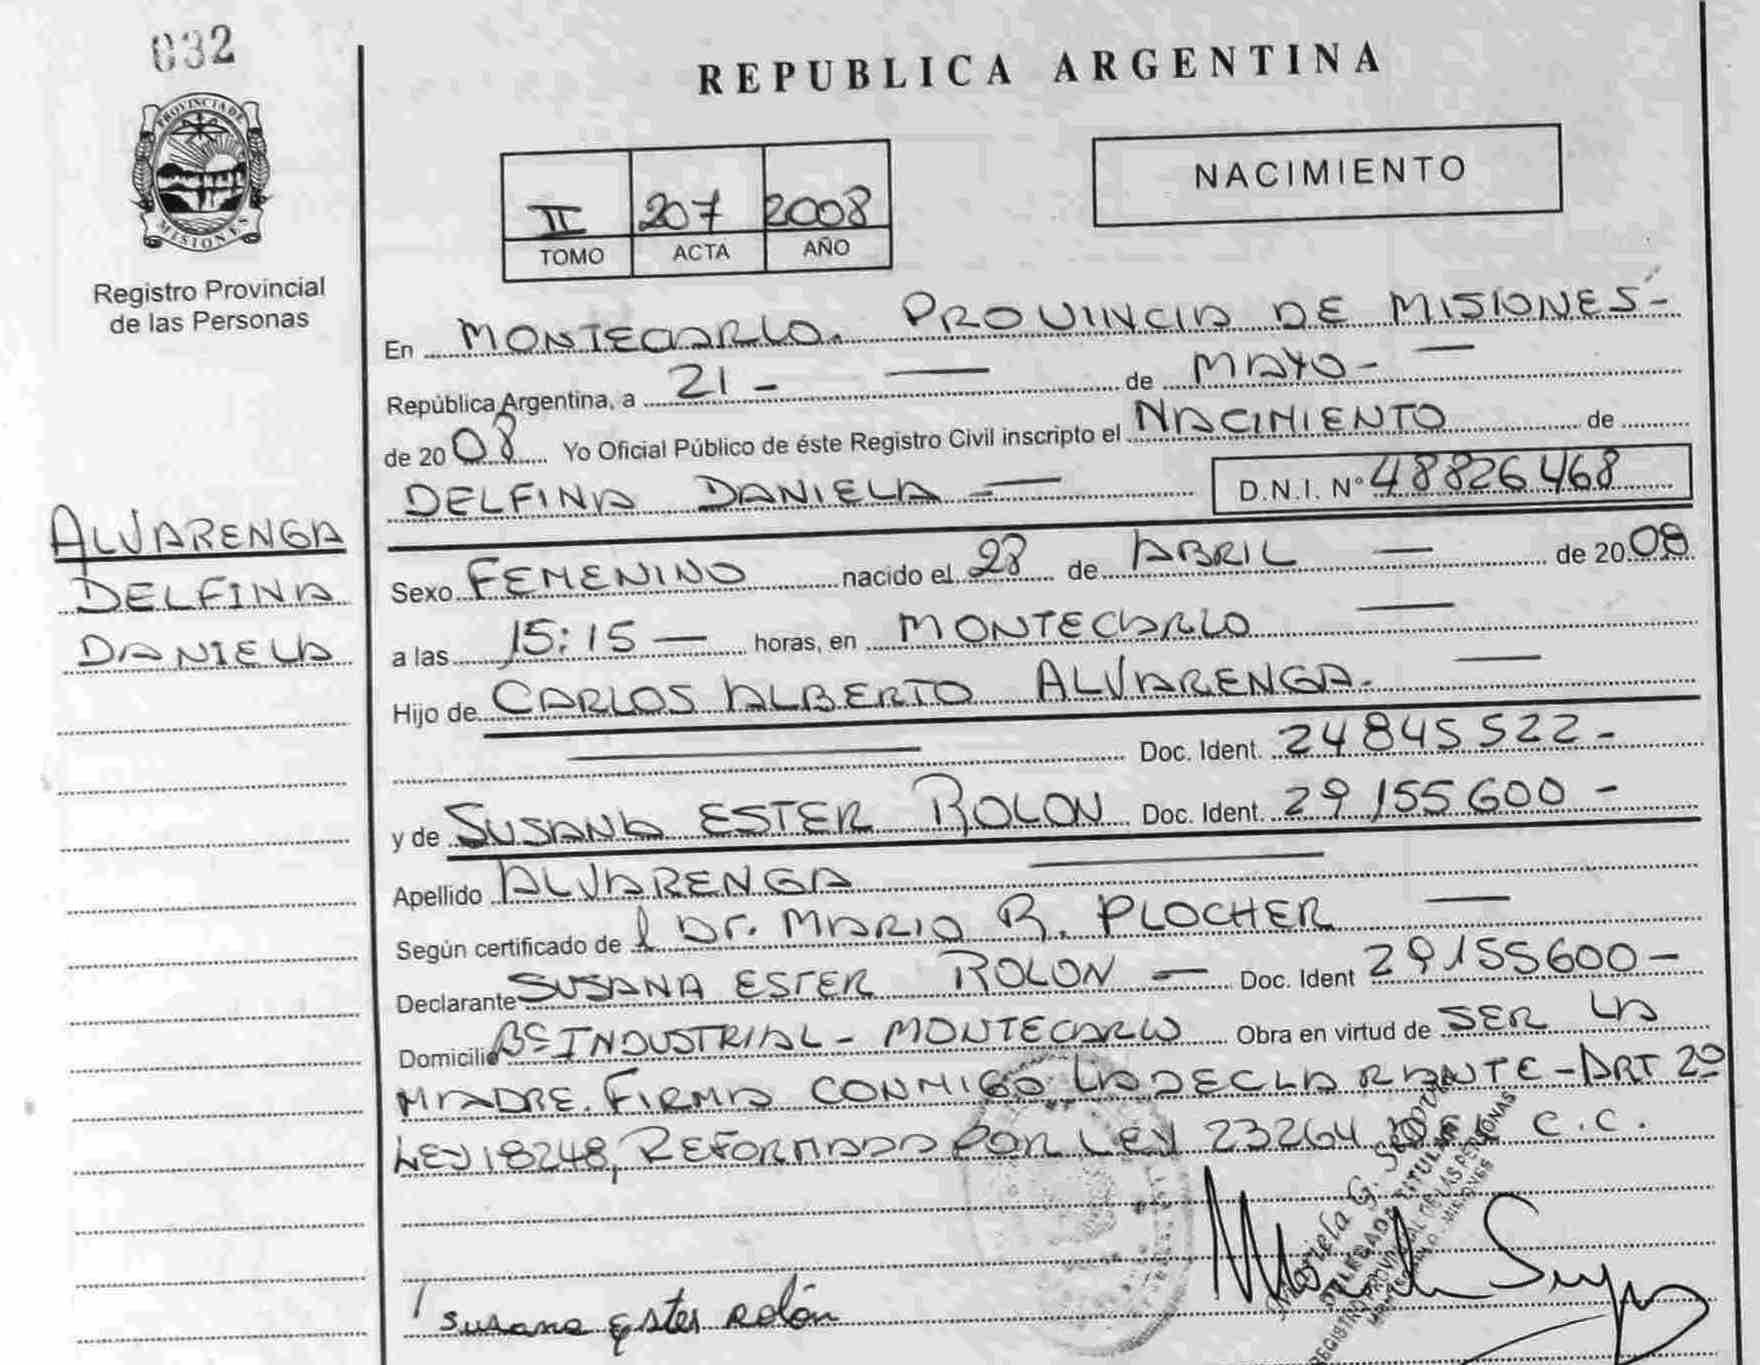 032
REPUBLICA ARGENTINA
PROVINCIA DE
MISIONES
Registro Provincial
de las Personas
II 207 2008
TOMO ACTA AÑO
NACIMIENTO
En MONTECARLO. PROVINCIA DE MISIONES-
República Argentina, a 21 - — de MAYO - —
de 2008 Yo Oficial Público de éste Registro Civil inscripto el NACIMIENTO de
DELFINA DANIELA — D.N.I. N° 48826468
ALVARENGA
DELFINA
DANIELA
Sexo FEMENINO nacido el 28 de ABRIL — de 2008
a las 15:15 — horas, en MONTECARLO —
Hijo de CARLOS ALBERTO ALVARENGA. —
— Doc. Ident. 24845522 -
y de SUSANA ESTER ROLON Doc. Ident. 29155600 -
Apellido ALVARENGA —
Según certificado de l Dr. MARIO R. PLOCHER —
Declarante SUSANA ESTER ROLON — Doc. Ident 29155600 -
Domicilio Bº INDUSTRIAL - MONTECARLO Obra en virtud de SER LA
MADRE. FIRMA CONMIGO LA DECLARANTE - ART 2º
LEY 18248, REFORMADO POR LEY 23264 C.C.
susana ester rolón
DELEGADA TITULAR
REGISTRO PROVINCIAL DE LAS PERSONAS
MONTECARLO - MISIONES